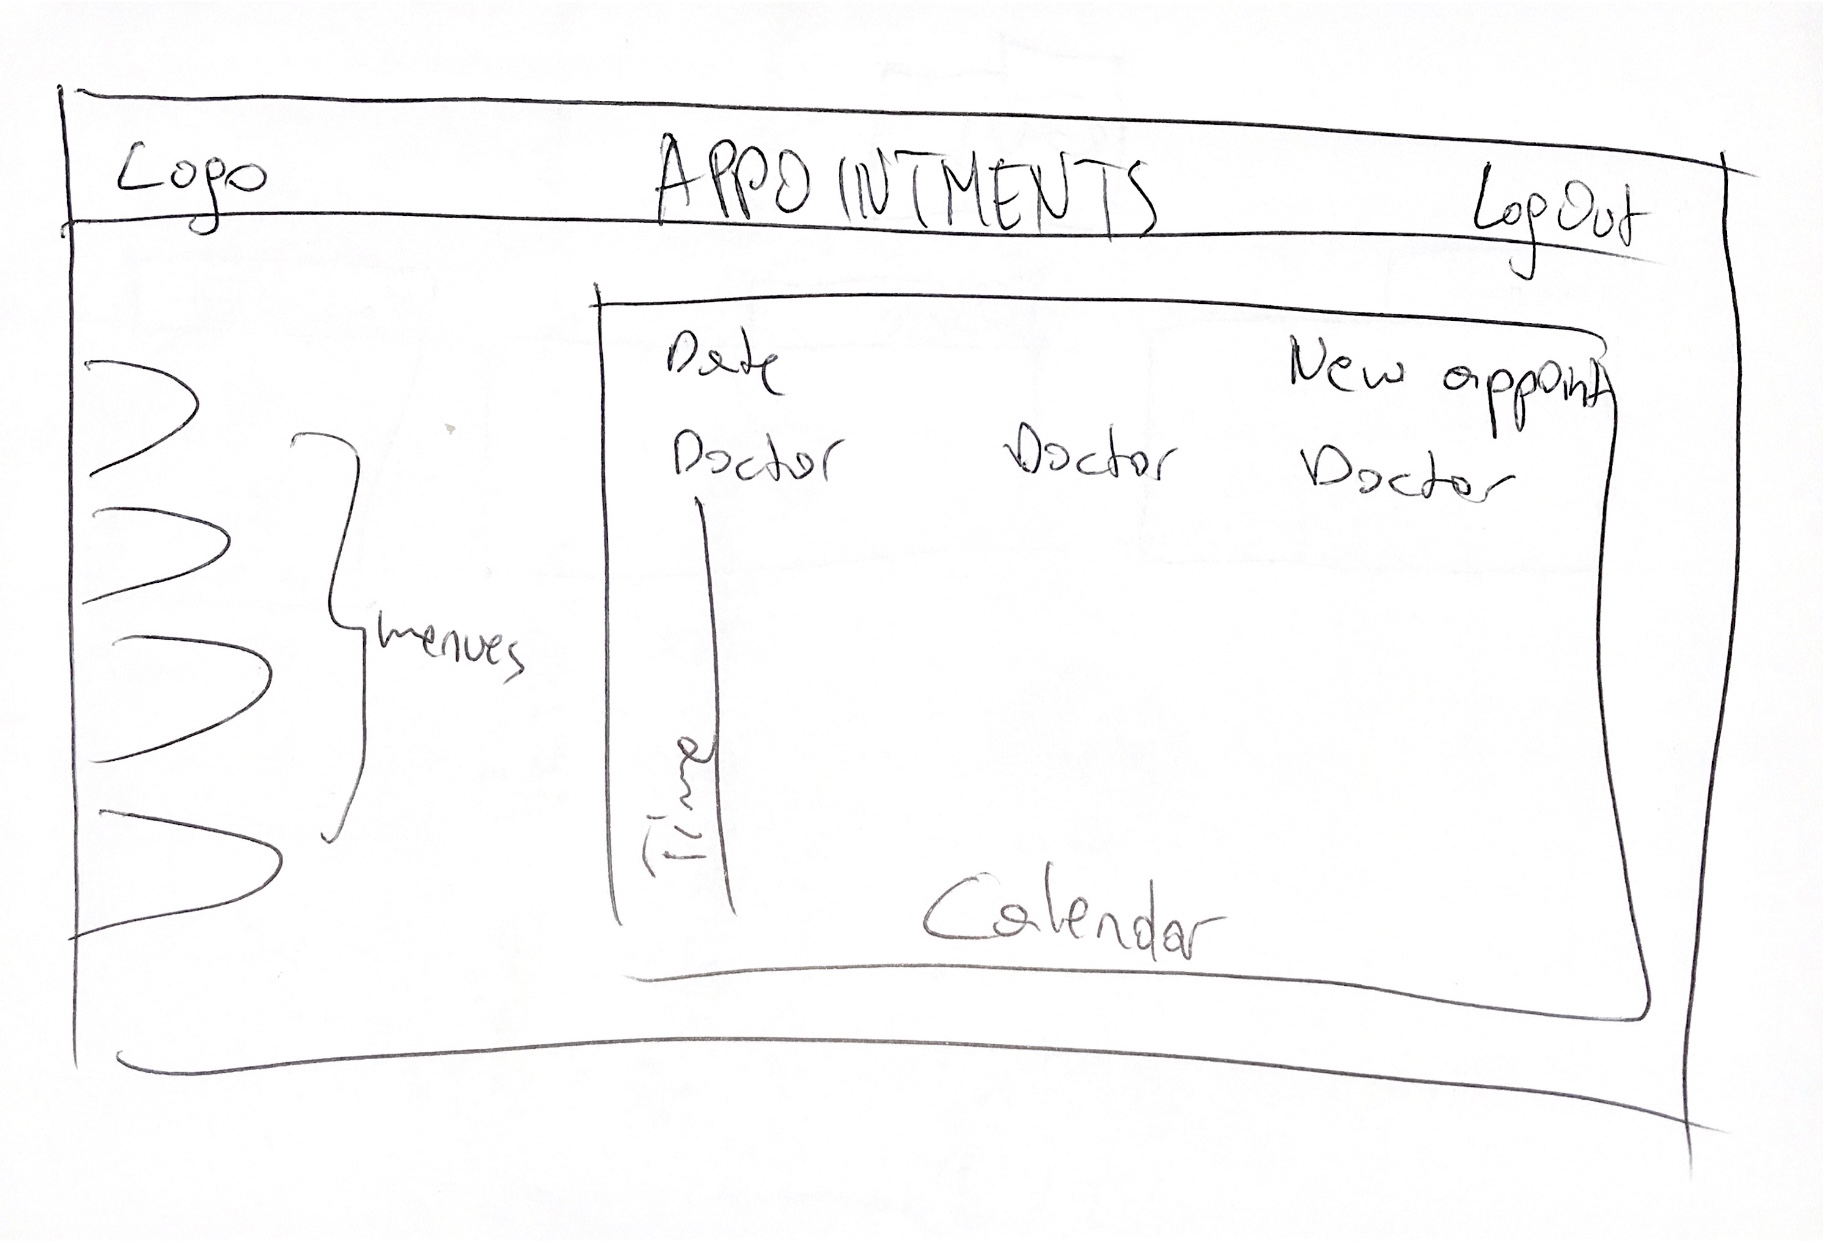 Logo APPOINTMENTS LogOut
Date New appoint
Doctor Doctor Doctor
menues
Time
Calendar